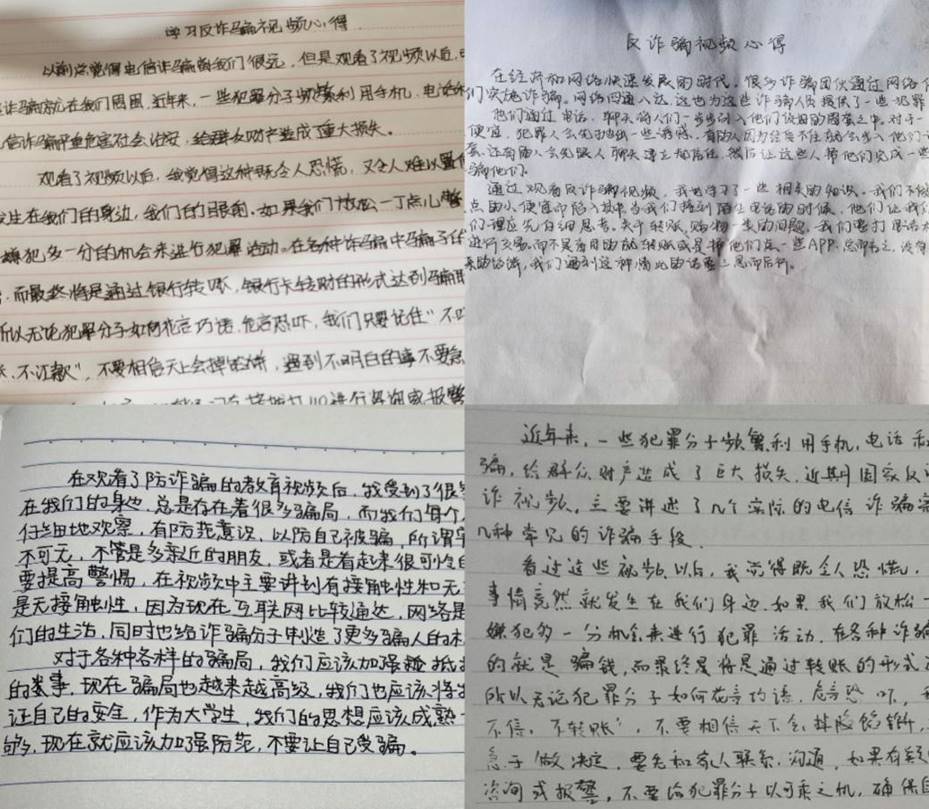 学习反诈骗视频心得
以前总觉得电信诈骗离我们很远，但是观看了视频以后，
诈骗就在我们周围，近年来，一些犯罪分子频繁利用手机、电话和
信诈骗严重危害社会治安，给群众财产造成重大损失。
观看了视频以后，我觉得这种既令人恐慌，又令人难以置信
发生在我们的身边，我们的眼前。如果我们放松一丁点儿警
嫌犯多一分的机会来进行犯罪活动。在各种诈骗中骗子
，而最终将是通过银行转账，银行卡转财的形式达到骗取
所以无论犯罪分子如何花言巧语，危言恐吓，我们只要记住“不
、不汇款”，不要相信天上会掉馅饼，遇到不明白的事不要急
打110进行咨询或报警
反诈骗视频心得
在经济和网络快速发展的时代，很多诈骗团伙通过网络
们实施诈骗。网络四通八达，这也为这些诈骗人员提供了一些犯罪
他们通过电话，聊天将人们一步步引入他们设固的圈套之中，对于一
便宜，犯罪人会先抛出一些诱饵，有的人因为经受不住就会步入他们
套，还有的人会先跟人聊天建立起信任，然后让这些人帮他们完成一些
骗他们。
通过观看反诈骗视频，我也学习了一些相关的知识。我们不能
点的小便宜而陷入其中，当我们接到陌生电话的时候，他们让我们
们理应先仔细思考。关于转账，购物一类的问题，我们要打电话
进行交易，而不是盲目的就转账或是帮他们点一些APP，总而言之，没有
来的馅饼，我们遇到这种情况的话要三思而后行。
在观看了防诈骗的教育视频后，我受到了很多
在我们的身边，总是存在着很多骗局，而我们每个
仔细地观察，有防范意识，以防自己被骗，所谓
不可无，不管是多亲近的朋友，或者是看起来很可怜
要提高警惕，在视频中主要讲到有接触性和无
是无接触性，因为现在互联网比较通达，网络是
们的生活，同时也给诈骗分子制造了更多骗人的机
对于各种各样的骗局，我们应该加强 抵
的 事，现在骗局也越来越高级，我们也应该将
证自己的安全，作为大学生，我们的思想应该成熟
够，现在就应该加强防范，不要让自己受骗。
近年来，一些犯罪分子频繁利用手机，电话和
骗，给群众财产造成了巨大损失，近期国家反
诈视频，主要讲述了几个实际的电信诈骗案
几种常见的诈骗手段。
看过这些视频以后，我觉得既令人恐慌，
事情竟然就发生在我们身边，如果我们放松一
嫌犯多一分机会来进行犯罪活动，在各种诈骗
的就是骗钱，而最终是将是通过转账的形式
所以无论犯罪分子如何花言巧语，危言恐吓，
不信，不转账”，不要相信天下会掉馅饼，
急于做决定，要先和家人联系，沟通，如果有疑
咨询或报警，不要给犯罪分子以可乘之机，确保